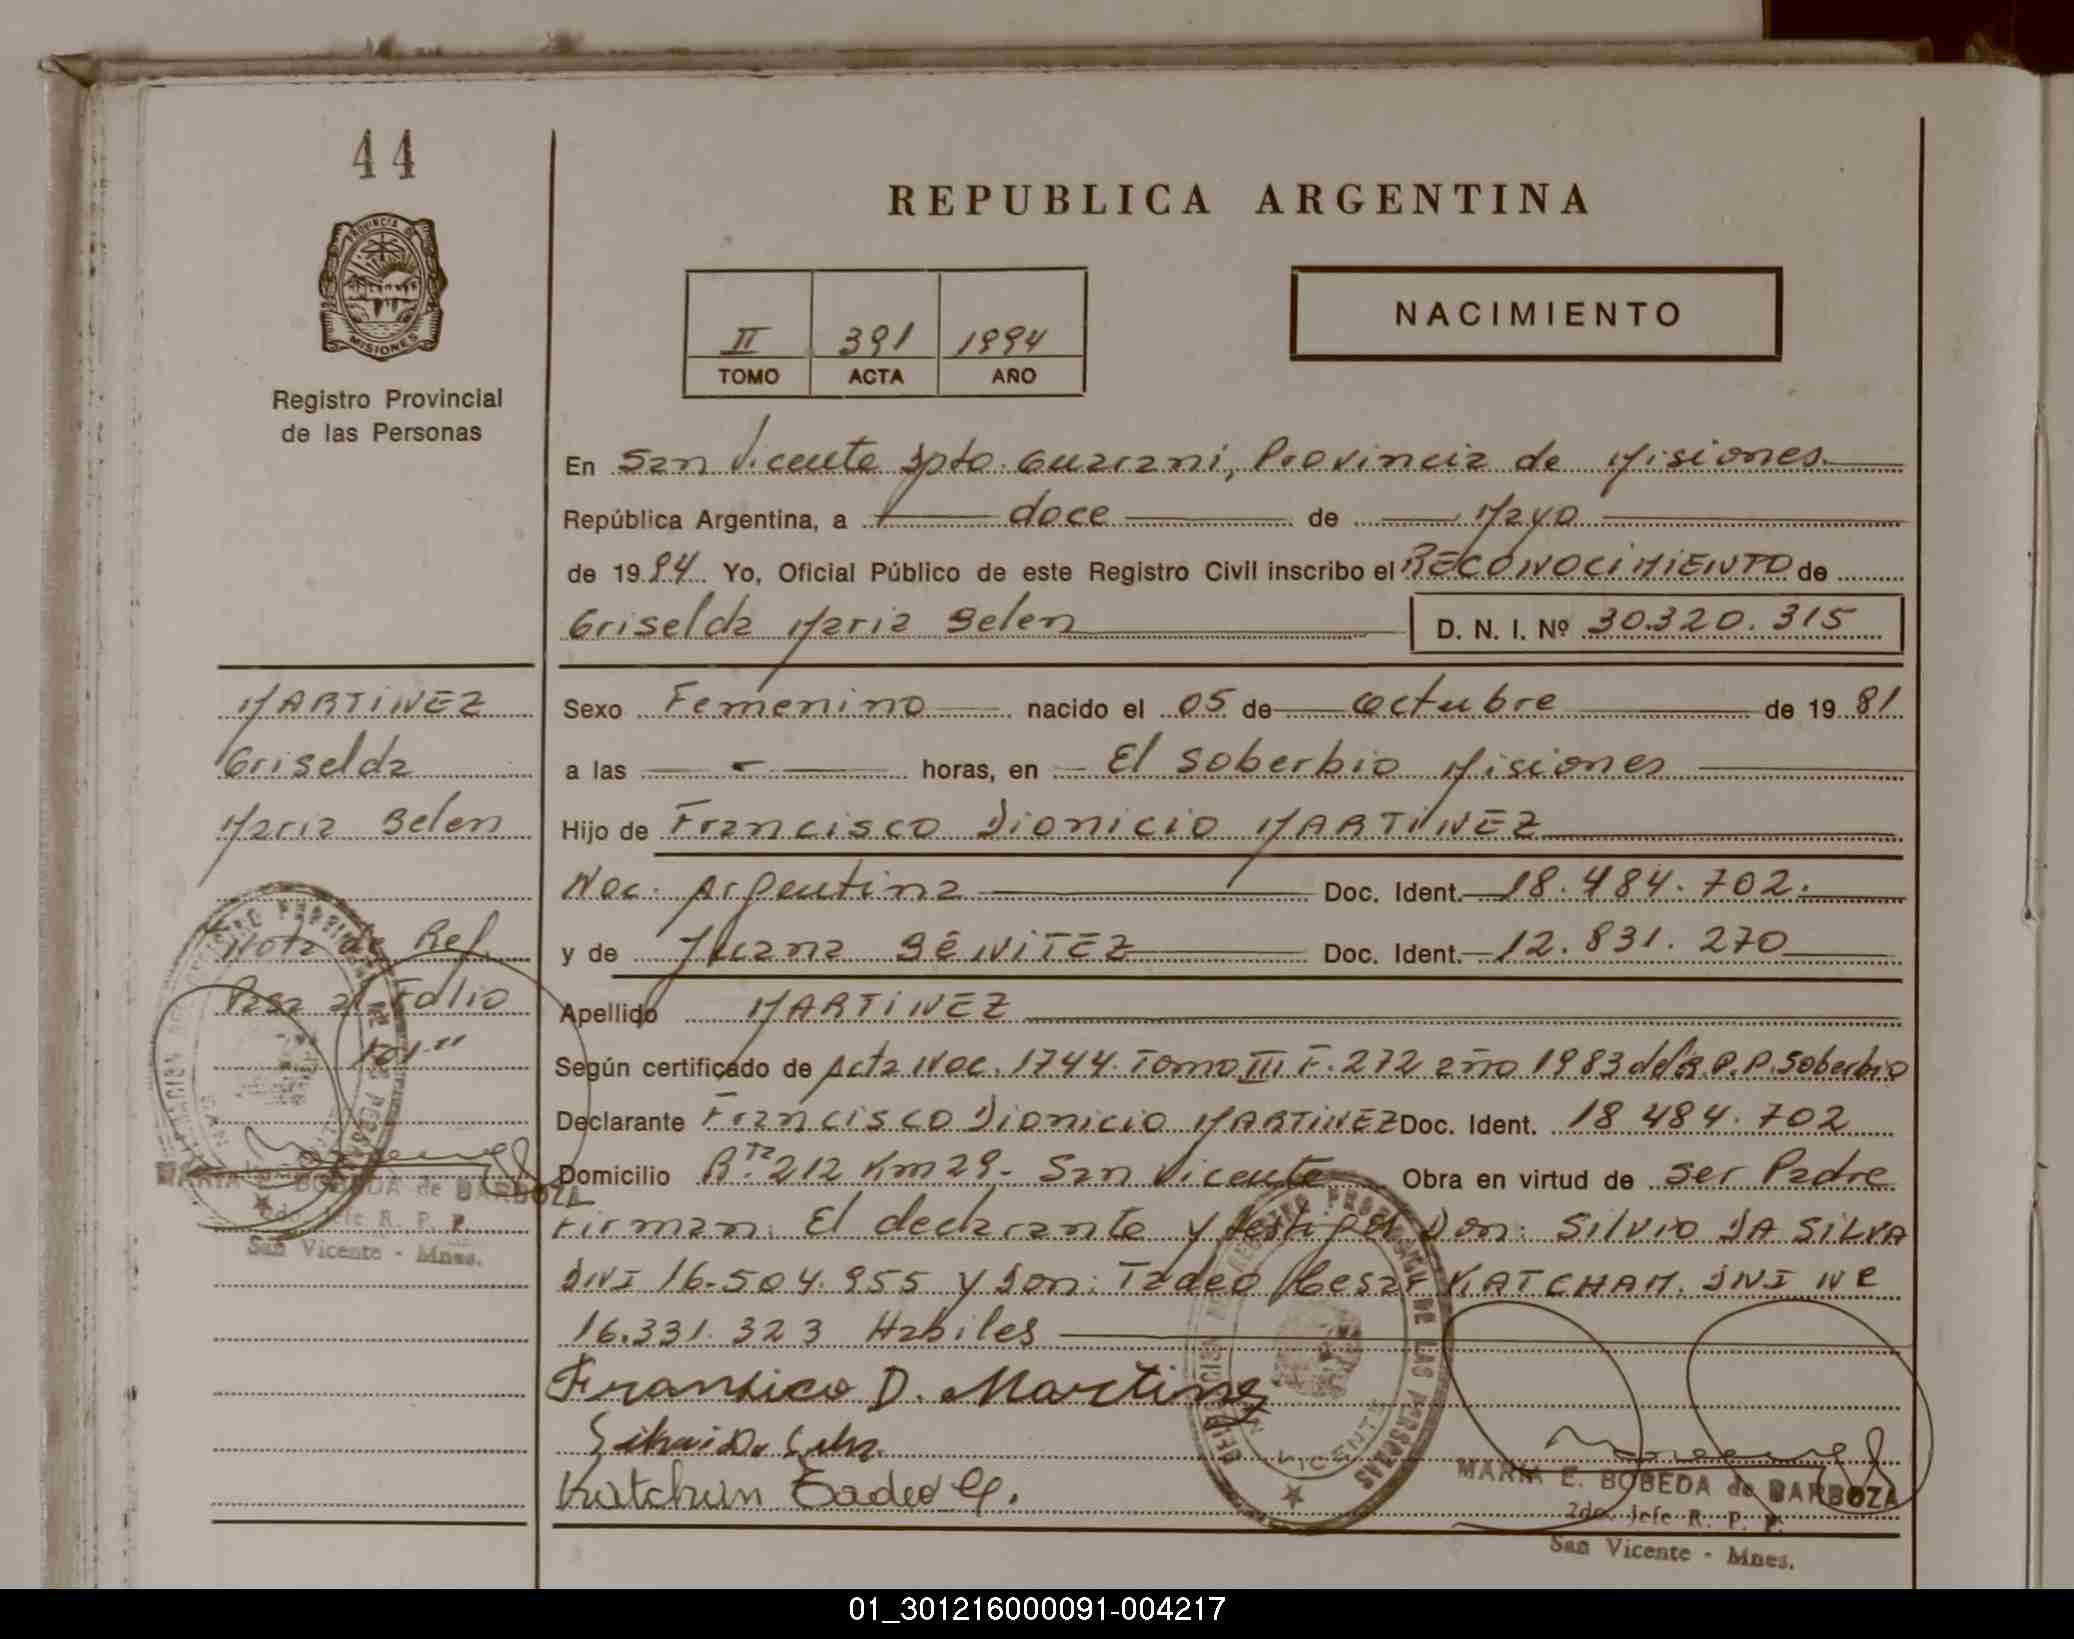 44
PROVINCIA DE
MISIONES
Registro Provincial
de las Personas
REPUBLICA ARGENTINA
II 391 1994
TOMO ACTA AÑO
NACIMIENTO
En San Vicente Dpto. Guarani, Provincia de Misiones
República Argentina, a doce de Mayo
de 1994 Yo, Oficial Público de este Registro Civil inscribo el RECONOCIMIENTO de
Griselda Maria Belen D. N. I. Nº 30.320.315
Sexo Femenino nacido el 05 de octubre de 1981
a las - horas, en El Soberbio Misiones
Hijo de Francisco Dionicio MARTINEZ
Nac: Argentina Doc. Ident. 18.484.702.
y de Juana BENITEZ Doc. Ident. 12.831.270
Apellido MARTINEZ
Según certificado de Acta Nac. 1744. Tomo III F. 272 año 1983 del R.P.P. Soberbio
Declarante Francisco Dionicio MARTINEZ Doc. Ident. 18 484.702
Domicilio Rta. 212 Km 29- San Vicente Obra en virtud de ser Padre
Firman: El declarante y testigos Don: Silvio DA SILVA
DNI 16.504.955 y Don: Tadeo Cesar KATCHAM. DNI Nº
16.331.323 Habiles
Fransico D. Martinez
Katchan Tadeo C.
MARTINEZ
Griselda
Maria Belen
Nota de Ref.
Pasa al Folio
101-"
MARIA E. BOBEDA de BARBOZA
2do. Jefe R. P. P.
San Vicente - Mnes.
DELEGACION REGISTRO PROVINCIAL DE LAS PERSONAS
SAN VICENTE
MARIA E. BOBEDA de BARBOZA
2do. Jefe R. P. P.
San Vicente - Mnes.
01_301216000091-004217